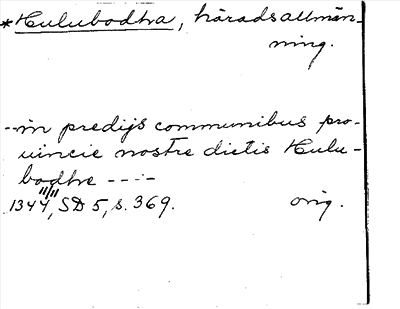 *Hulubodhra, häradsallmän-
ning.
--in predijs communibus pro-
uincie nostre dictis Hulu-
bodhre ----
1344 11/11, SD 5, s. 369. orig.